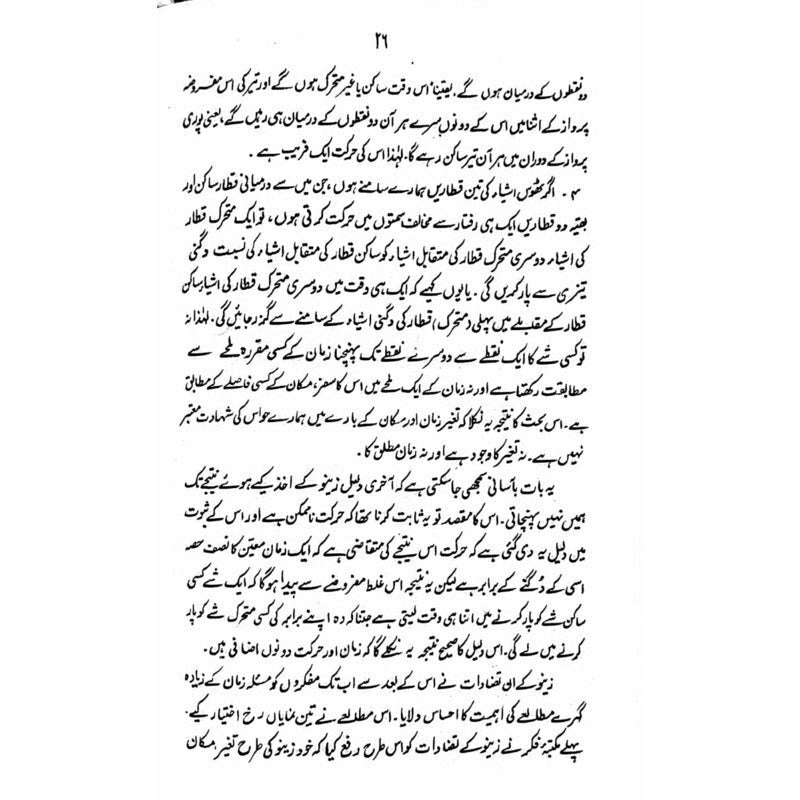 ۲۶
دو نقطوں کے درمیان ہوں گے۔ یقیناً اس وقت ساکن یا غیر متحرک ہوں گے اور تیر کی اس مفروضہ
پرواز کے اثنا میں اس کے دونوں سرے ہر آن دو نقطوں کے درمیان ہی رہیں گے، یعنی پوری
پرواز کے دوران میں ہر آن تیر ساکن رہے گا۔ لہٰذا اس کی حرکت ایک فریب ہے۔
۴۔ اگر ٹھوس اشیاء کی تین قطاریں ہمارے سامنے ہوں، جن میں سے درمیانی قطار ساکن اور
بقیہ دو قطاریں ایک ہی رفتار سے مخالف سمتوں میں حرکت کرتی ہوں، تو ایک متحرک قطار
کی اشیاء دوسری متحرک قطار کی متقابل اشیاء کو ساکن قطار کی متقابل اشیاء کی نسبت دگنی
تیزی سے پار کریں گی۔ یا یوں کہیے کہ ایک ہی وقت میں دوسری متحرک قطار کی اشیا ساکن
قطار کے مقابلے میں پہلی (متحرک) قطار کی دگنی اشیاء کے سامنے سے گزر جائیں گی۔ لہٰذا نہ
تو کسی شے کا ایک نقطے سے دوسرے نقطے تک پہنچنا زمان کے کسی مقررہ لمحے سے
مطابقت رکھتا ہے اور نہ زمان کے ایک لمحے میں اس کا سفر، مکان کے کسی فاصلے کے مطابق
ہے۔ اس بحث کا نتیجہ یہ نکلا کہ تغیر زمان اور مکان کے بارے میں ہمارے حواس کی شہادت معتبر
نہیں ہے۔ نہ تغیر کا وجود ہے اور نہ زمان مطلق کا۔
یہ بات بآسانی سمجھی جا سکتی ہے کہ آخری دلیل زینو کے اخذ کیے ہوئے نتیجے تک
ہمیں نہیں پہنچاتی۔ اس کا مقصد تو یہ ثابت کرنا تھا کہ حرکت ناممکن ہے اور اس کے ثبوت
میں دلیل یہ دی گئی ہے کہ حرکت اس نتیجے کی متقاضی ہے کہ ایک زمان معین کا نصف حصہ
اسی کے دُگنے کے برابر ہے لیکن یہ نتیجہ اس غلط مفروضے سے پیدا ہوگا کہ ایک شے کسی
ساکن شے کو پار کرنے میں اتنا ہی وقت لیتی ہے جتنا کہ وہ اپنے برابر کی کسی متحرک شے کو پار
کرنے میں لے گی۔ اس دلیل کا صحیح نتیجہ یہ نکلے گا کہ زمان اور حرکت دونوں اضافی ہیں۔
زینو کے ان تضادات نے اس کے بعد سے اب تک مفکروں کو مسئلہ زمان کے زیادہ
گہرے مطالعے کی اہمیت کا احساس دلایا۔ اس مطالعے نے تین نمایاں رخ اختیار کیے۔
پہلے مکتبۂ فکر نے زینو کے تضادات کو اس طرح رفع کیا کہ خود زینو کی طرح تغیر، مکان